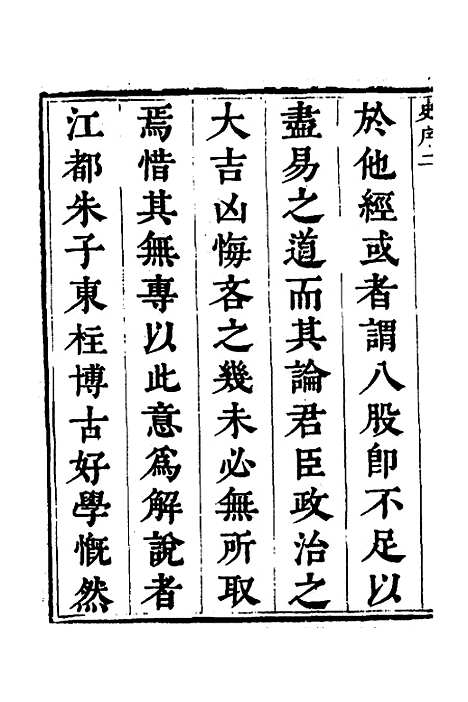 史序二
於他經或者謂八股卽不足以
盡易之道而其論君臣政治之
大吉凶悔吝之幾未必無所取
焉惜其無專以此意爲解說者
江都朱子東柱博古好學慨然